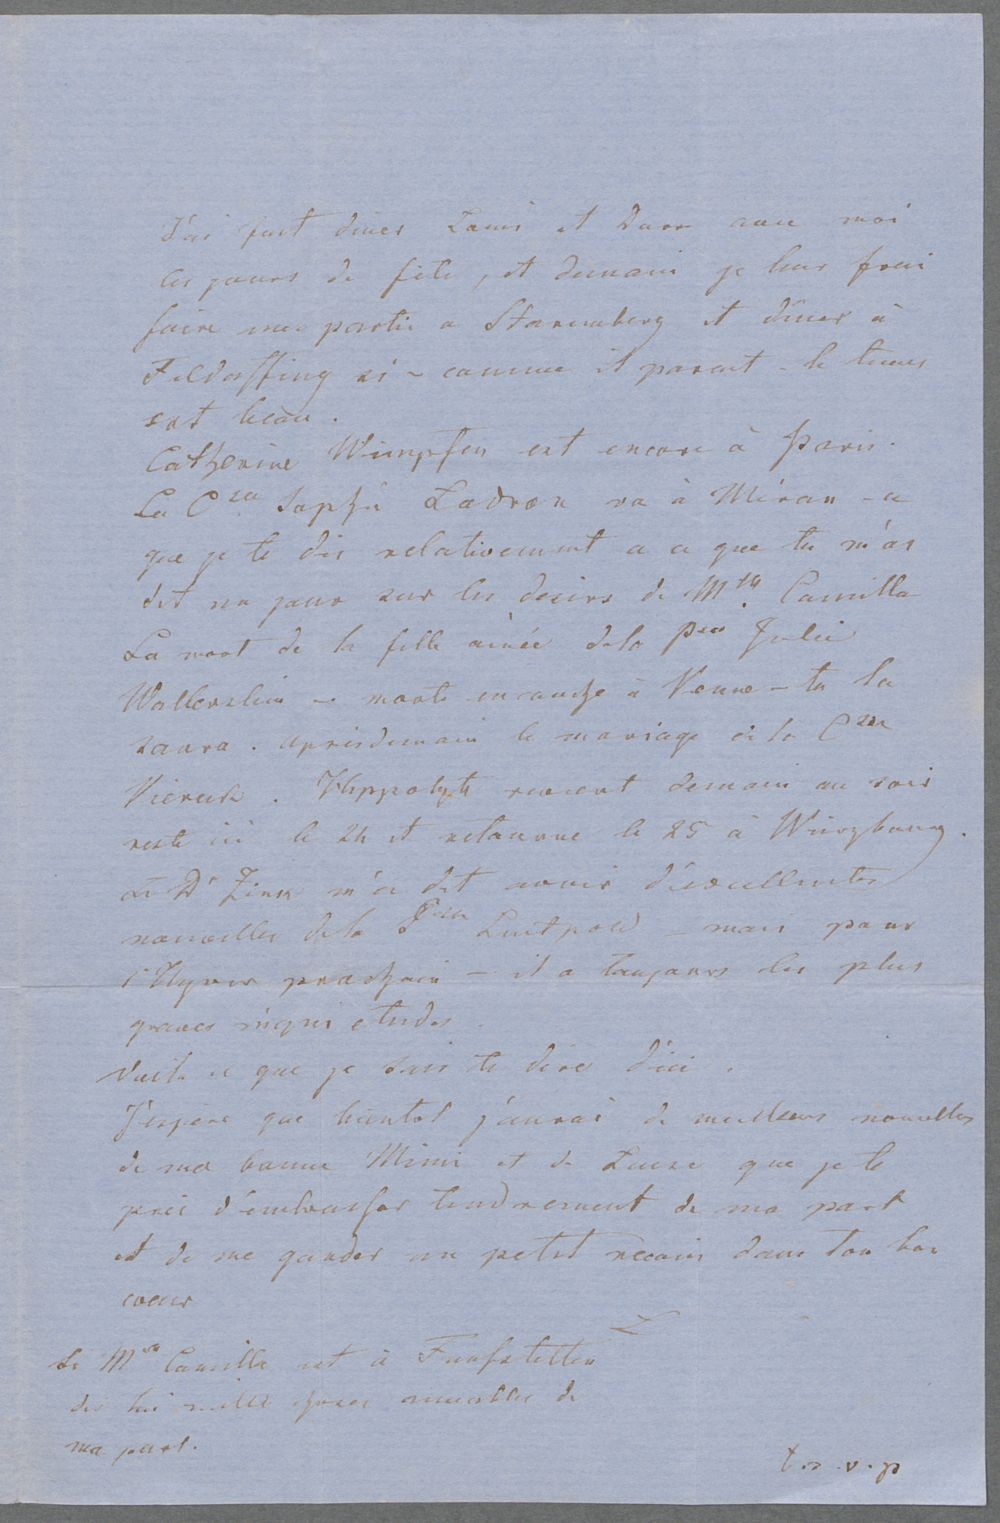 J'ai fait diner Louis et avec moi
les jours de fête, et demain je leur ferai
faire une partie a Staremberg et diner à
Feldaffing si - comme il parait - le tems
est beau.
Catherine Wimpfen est encore à Paris.
La Csse Sophie Lodron va à Méran - ce
que je te dis relativement a ce que tu m'as
dit un jour sur les desirs de Mlle Camilla
La mort de la fille ainée de la Psse Julie
Wallerstein - morte en couche à Vienne - tu la
saura. apresdemain le mariage de la Csse
Viereck. Hippolyte revient demain au soir
reste ici le 24 et retourne le 25 à Würzbourg.
Le Dr Zink m'a dit avoir d'excellentes
nouvelles de la Psse Luitpold - mais pour
l'Hyver prochain - il a toujours les plus
graves inquietudes.
Voila ce que je sais te dire d'ici.
J'espère que bientot j'aurai de meilleurs nouvelles
de ma bonne Mimi et de Luise que je te
prie d'embrasser tendrement de ma part
et de me garder un petit recoin dans ton bon
coeur
L
Si Mlle Camille est à Funfstetten
dis lui mille choses amicales de
ma part.
t.s.v.p